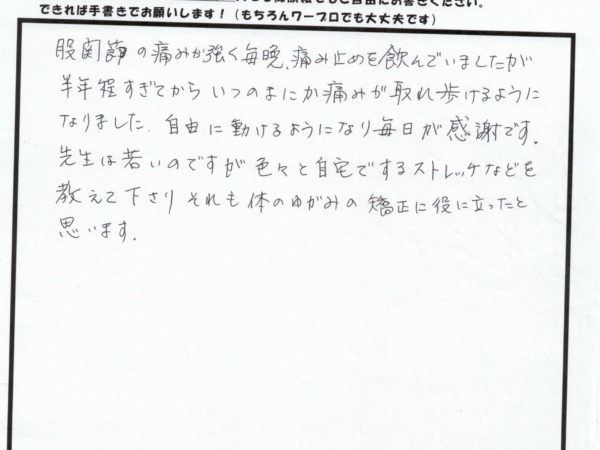 自由にお書きください。
できれば手書きでお願いします！（もちろんワープロでも大丈夫です）
股関節の痛みが強く毎晩、痛み止めを飲んでいましたが
半年程すぎてから いつのまにか痛みが取れ歩けるように
なりました。自由に動けるようになり毎日が感謝です。
先生は若いのですが色々と自宅でするストレッチなどを
教えて下さり それも体のゆがみの矯正に役に立ったと
思います。